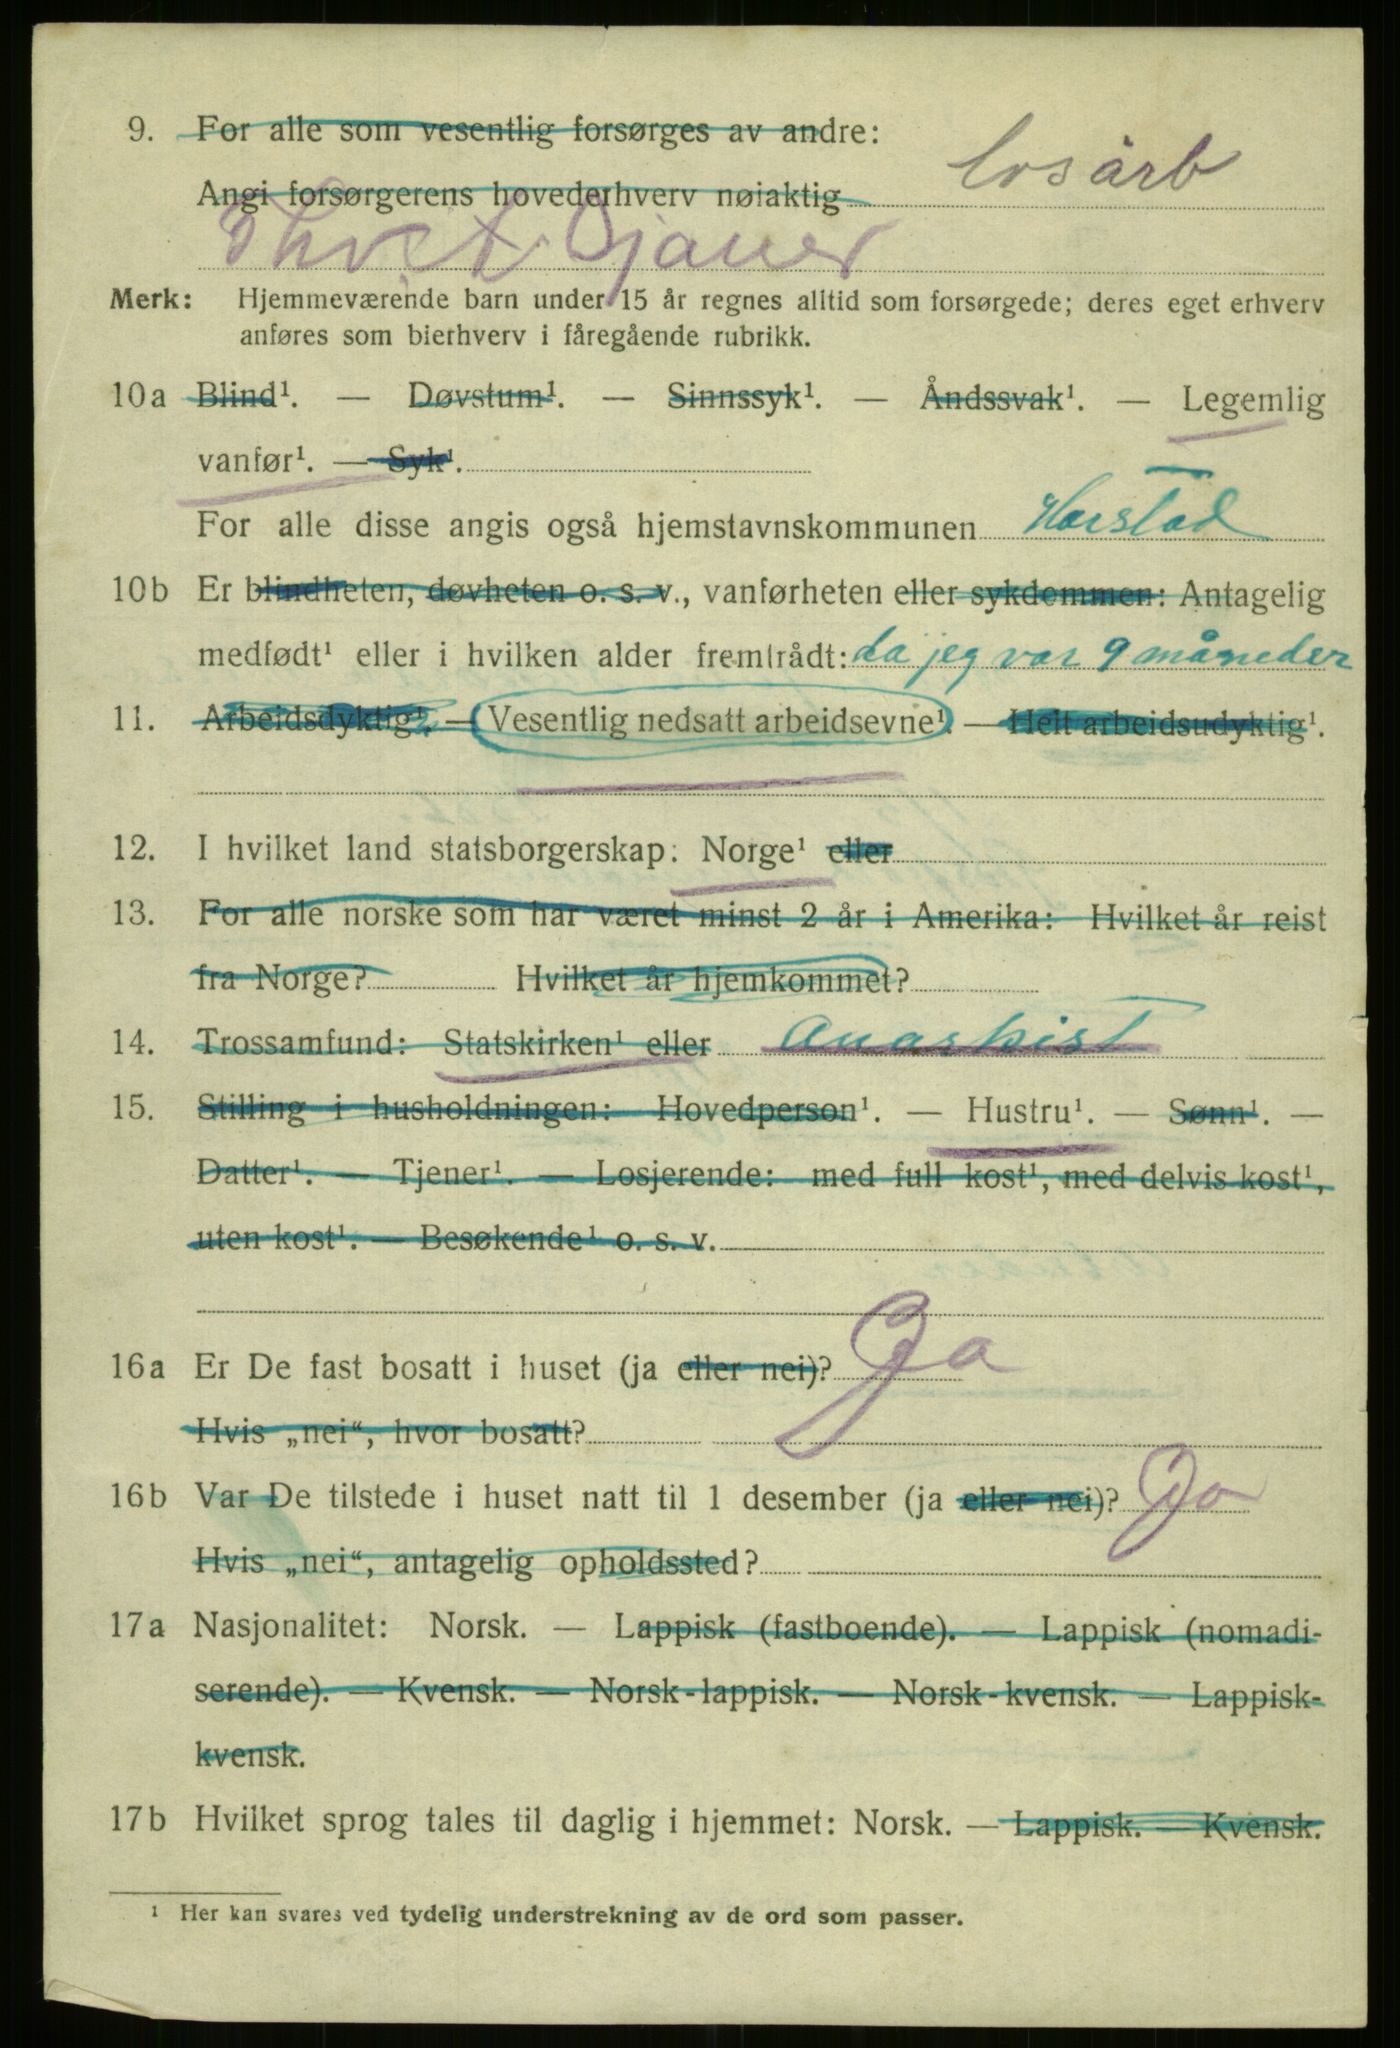 9. For alle som vesentlig forsørges av andre:
Angi forsørgerens hovederhverv nøiaktig losarb
Merk: Hjemmeværende barn under 15 år regnes alltid som forsørgede; deres eget erhverv
anføres som bierhverv i føregående rubrikk.
10a Blind¹. — Døvstum¹. — Sinnssyk¹. — Åndssvak¹. — Legemlig
vanfør¹. — Syk¹.
For alle disse angis også hjemstavnskommunen Harstad
10b Er blindheten, døvheten o. s. v., vanførheten eller sykdommen: Antagelig
medfødt¹ eller i hvilken alder fremtrådt: da jeg var 9 måneder
11. Arbeidsdyktig¹. — Vesentlig nedsatt arbeidsevne¹. — Helt arbeidsudyktig¹.
12. I hvilket land statsborgerskap: Norge¹ eller
13. For alle norske som har været minst 2 år i Amerika: Hvilket år reist
fra Norge? Hvilket år hjemkommet?
14. Trossamfund: Statskirken¹ eller Anarkist
15. Stilling i husholdningen: Hovedperson¹. — Hustru¹. — Sønn¹. —
Datter¹. — Tjener¹. — Losjerende: med full kost¹, med delvis kost¹,
uten kost¹. — Besøkende¹ o. s. v.
16a Er De fast bosatt i huset (ja eller nei)? Ja
Hvis „nei“, hvor bosatt?
16b Var De tilstede i huset natt til 1 desember (ja eller nei)? Ja
Hvis „nei“, antagelig opholdssted?
17a Nasjonalitet: Norsk. — Lappisk (fastboende). — Lappisk (nomadi-
serende). — Kvensk. — Norsk-lappisk. — Norsk-kvensk. — Lappisk-
kvensk.
17b Hvilket sprog tales til daglig i hjemmet: Norsk. — Lappisk. — Kvensk.
¹ Her kan svares ved tydelig understrekning av de ord som passer.